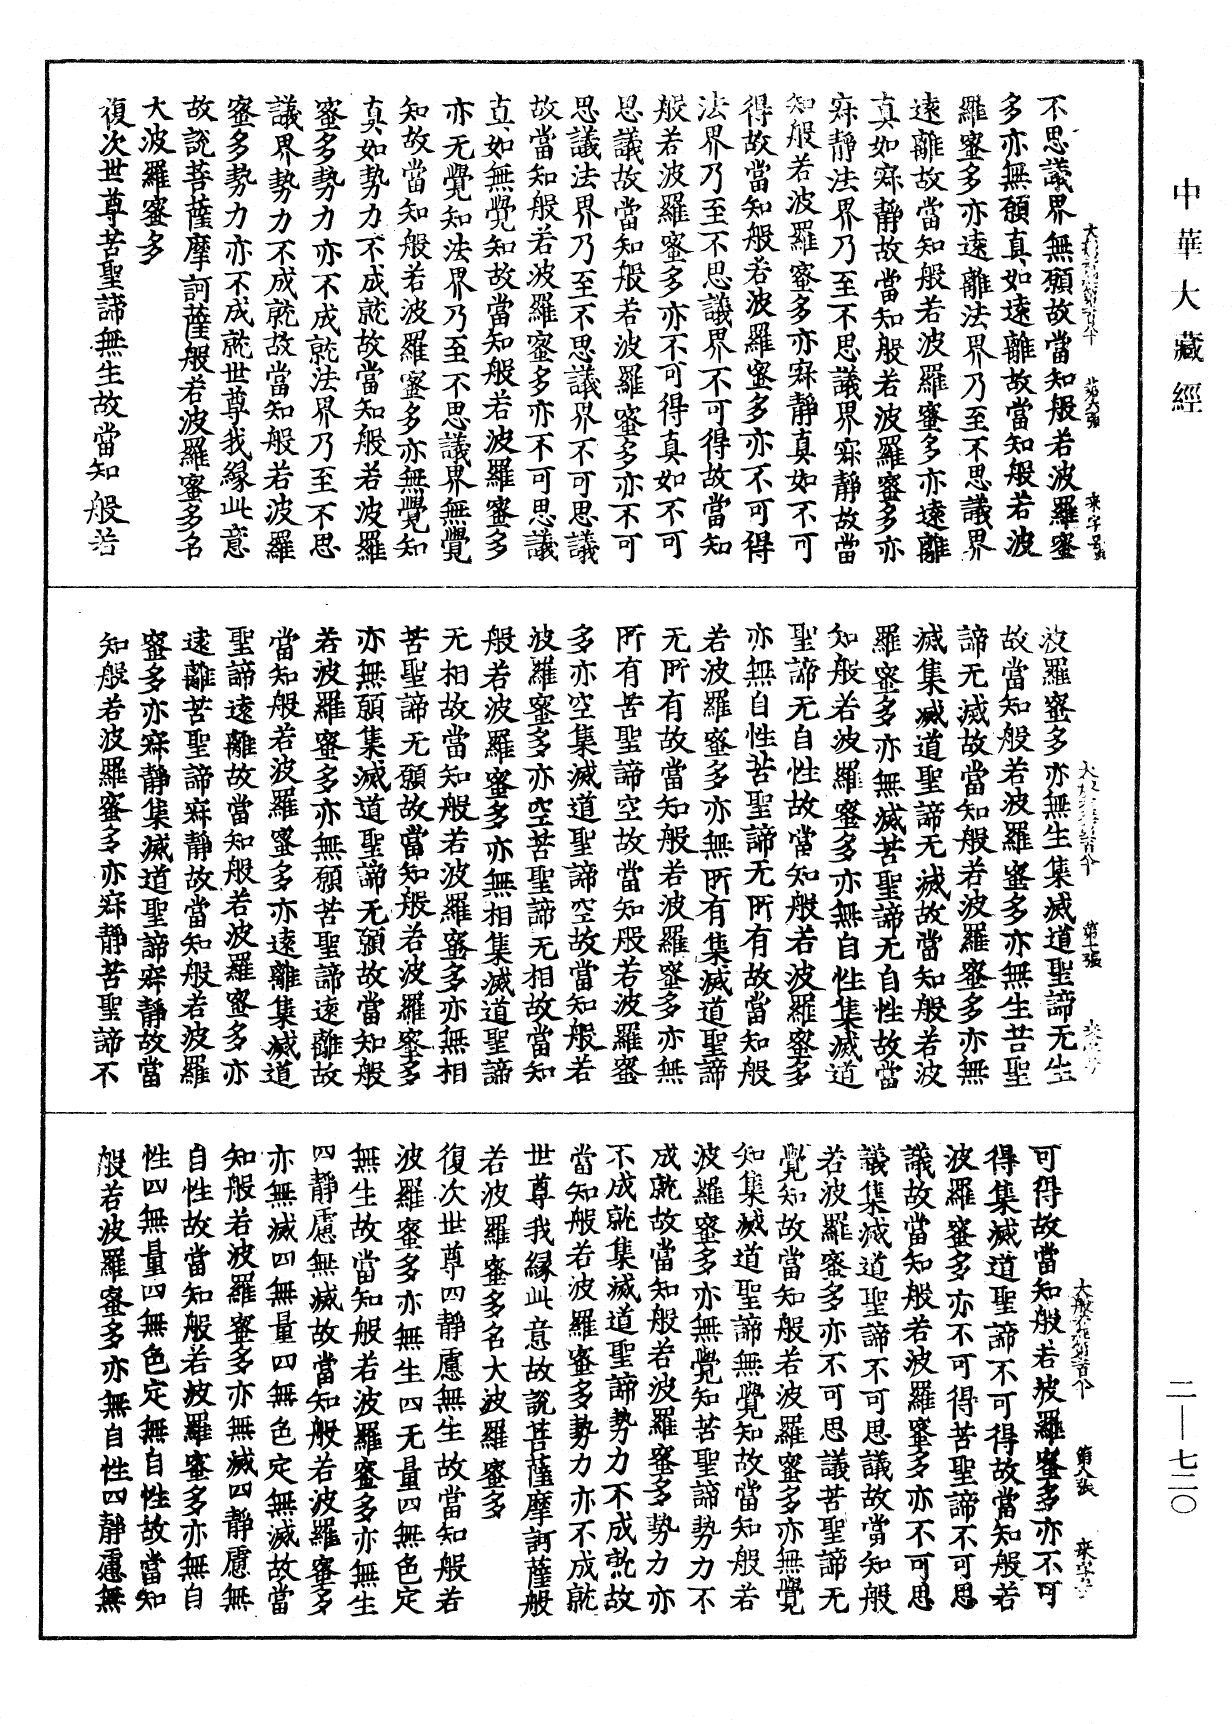 中華大藏經
不思議界無願故當知般若波羅蜜
多亦無願真如遠離故當知般若波
羅蜜多亦遠離法界乃至不思議界
遠離故當知般若波羅蜜多亦遠離
真如寂靜故當知般若波羅蜜多亦
寂靜法界乃至不思議界寂靜故當
知般若波羅蜜多亦寂靜真如不可
得故當知般若波羅蜜多亦不可得
法界乃至不思議界不可得故當知
般若波羅蜜多亦不可得真如不可
思議故當知般若波羅蜜多亦不可
思議法界乃至不思議界不可思議
故當知般若波羅蜜多亦不可思議
真如無覺知故當知般若波羅蜜多
亦无覺知法界乃至不思議界無覺
知故當知般若波羅蜜多亦無覺知
真如勢力不成就故當知般若波羅
蜜多勢力亦不成就法界乃至不思
議界勢力不成就故當知般若波羅
蜜多勢力亦不成就世尊我緣此意
故說菩薩摩訶薩般若波羅蜜多名
大波羅蜜多
復次世尊苦聖諦無生故當知般若
第七張
波羅蜜多亦無生集滅道聖諦无生
故當知般若波羅蜜多亦無生苦聖
諦无滅故當知般若波羅蜜多亦無
滅集滅道聖諦无滅故當知般若波
羅蜜多亦無滅苦聖諦无自性故當
知般若波羅蜜多亦無自性集滅道
聖諦无自性故當知般若波羅蜜多
亦無自性苦聖諦无所有故當知般
若波羅蜜多亦無所有集滅道聖諦
无所有故當知般若波羅蜜多亦無
所有苦聖諦空故當知般若波羅蜜
多亦空集滅道聖諦空故當知般若
波羅蜜多亦空苦聖諦无相故當知
般若波羅蜜多亦無相集滅道聖諦
无相故當知般若波羅蜜多亦無相
苦聖諦无願故當知般若波羅蜜多
亦無願集滅道聖諦无願故當知般
若波羅蜜多亦無願苦聖諦遠離故
當知般若波羅蜜多亦遠離集滅道
聖諦遠離故當知般若波羅蜜多亦
遠離苦聖諦寂靜故當知般若波羅
蜜多亦寂靜集滅道聖諦寂靜故當
知般若波羅蜜多亦寂靜苦聖諦不
第八張
可得故當知般若波羅蜜多亦不可
得集滅道聖諦不可得故當知般若
波羅蜜多亦不可得苦聖諦不可思
議故當知般若波羅蜜多亦不可思
議集滅道聖諦不可思議故當知般
若波羅蜜多亦不可思議苦聖諦无
覺知故當知般若波羅蜜多亦無覺
知集滅道聖諦無覺知故當知般若
波羅蜜多亦無覺知苦聖諦勢力不
成就故當知般若波羅蜜多勢力亦
不成就集滅道聖諦勢力不成就故
當知般若波羅蜜多勢力亦不成就
世尊我緣此意故說菩薩摩訶薩般
若波羅蜜多名大波羅蜜多
復次世尊四靜慮無生故當知般若
波羅蜜多亦無生四无量四無色定
無生故當知般若波羅蜜多亦無生
四靜慮無滅故當知般若波羅蜜多
亦無滅四無量四無色定無滅故當
知般若波羅蜜多亦無滅四靜慮無
自性故當知般若波羅蜜多亦無自
性四無量四無色定無自性故當知
般若波羅蜜多亦無自性四靜慮無
二—七二〇